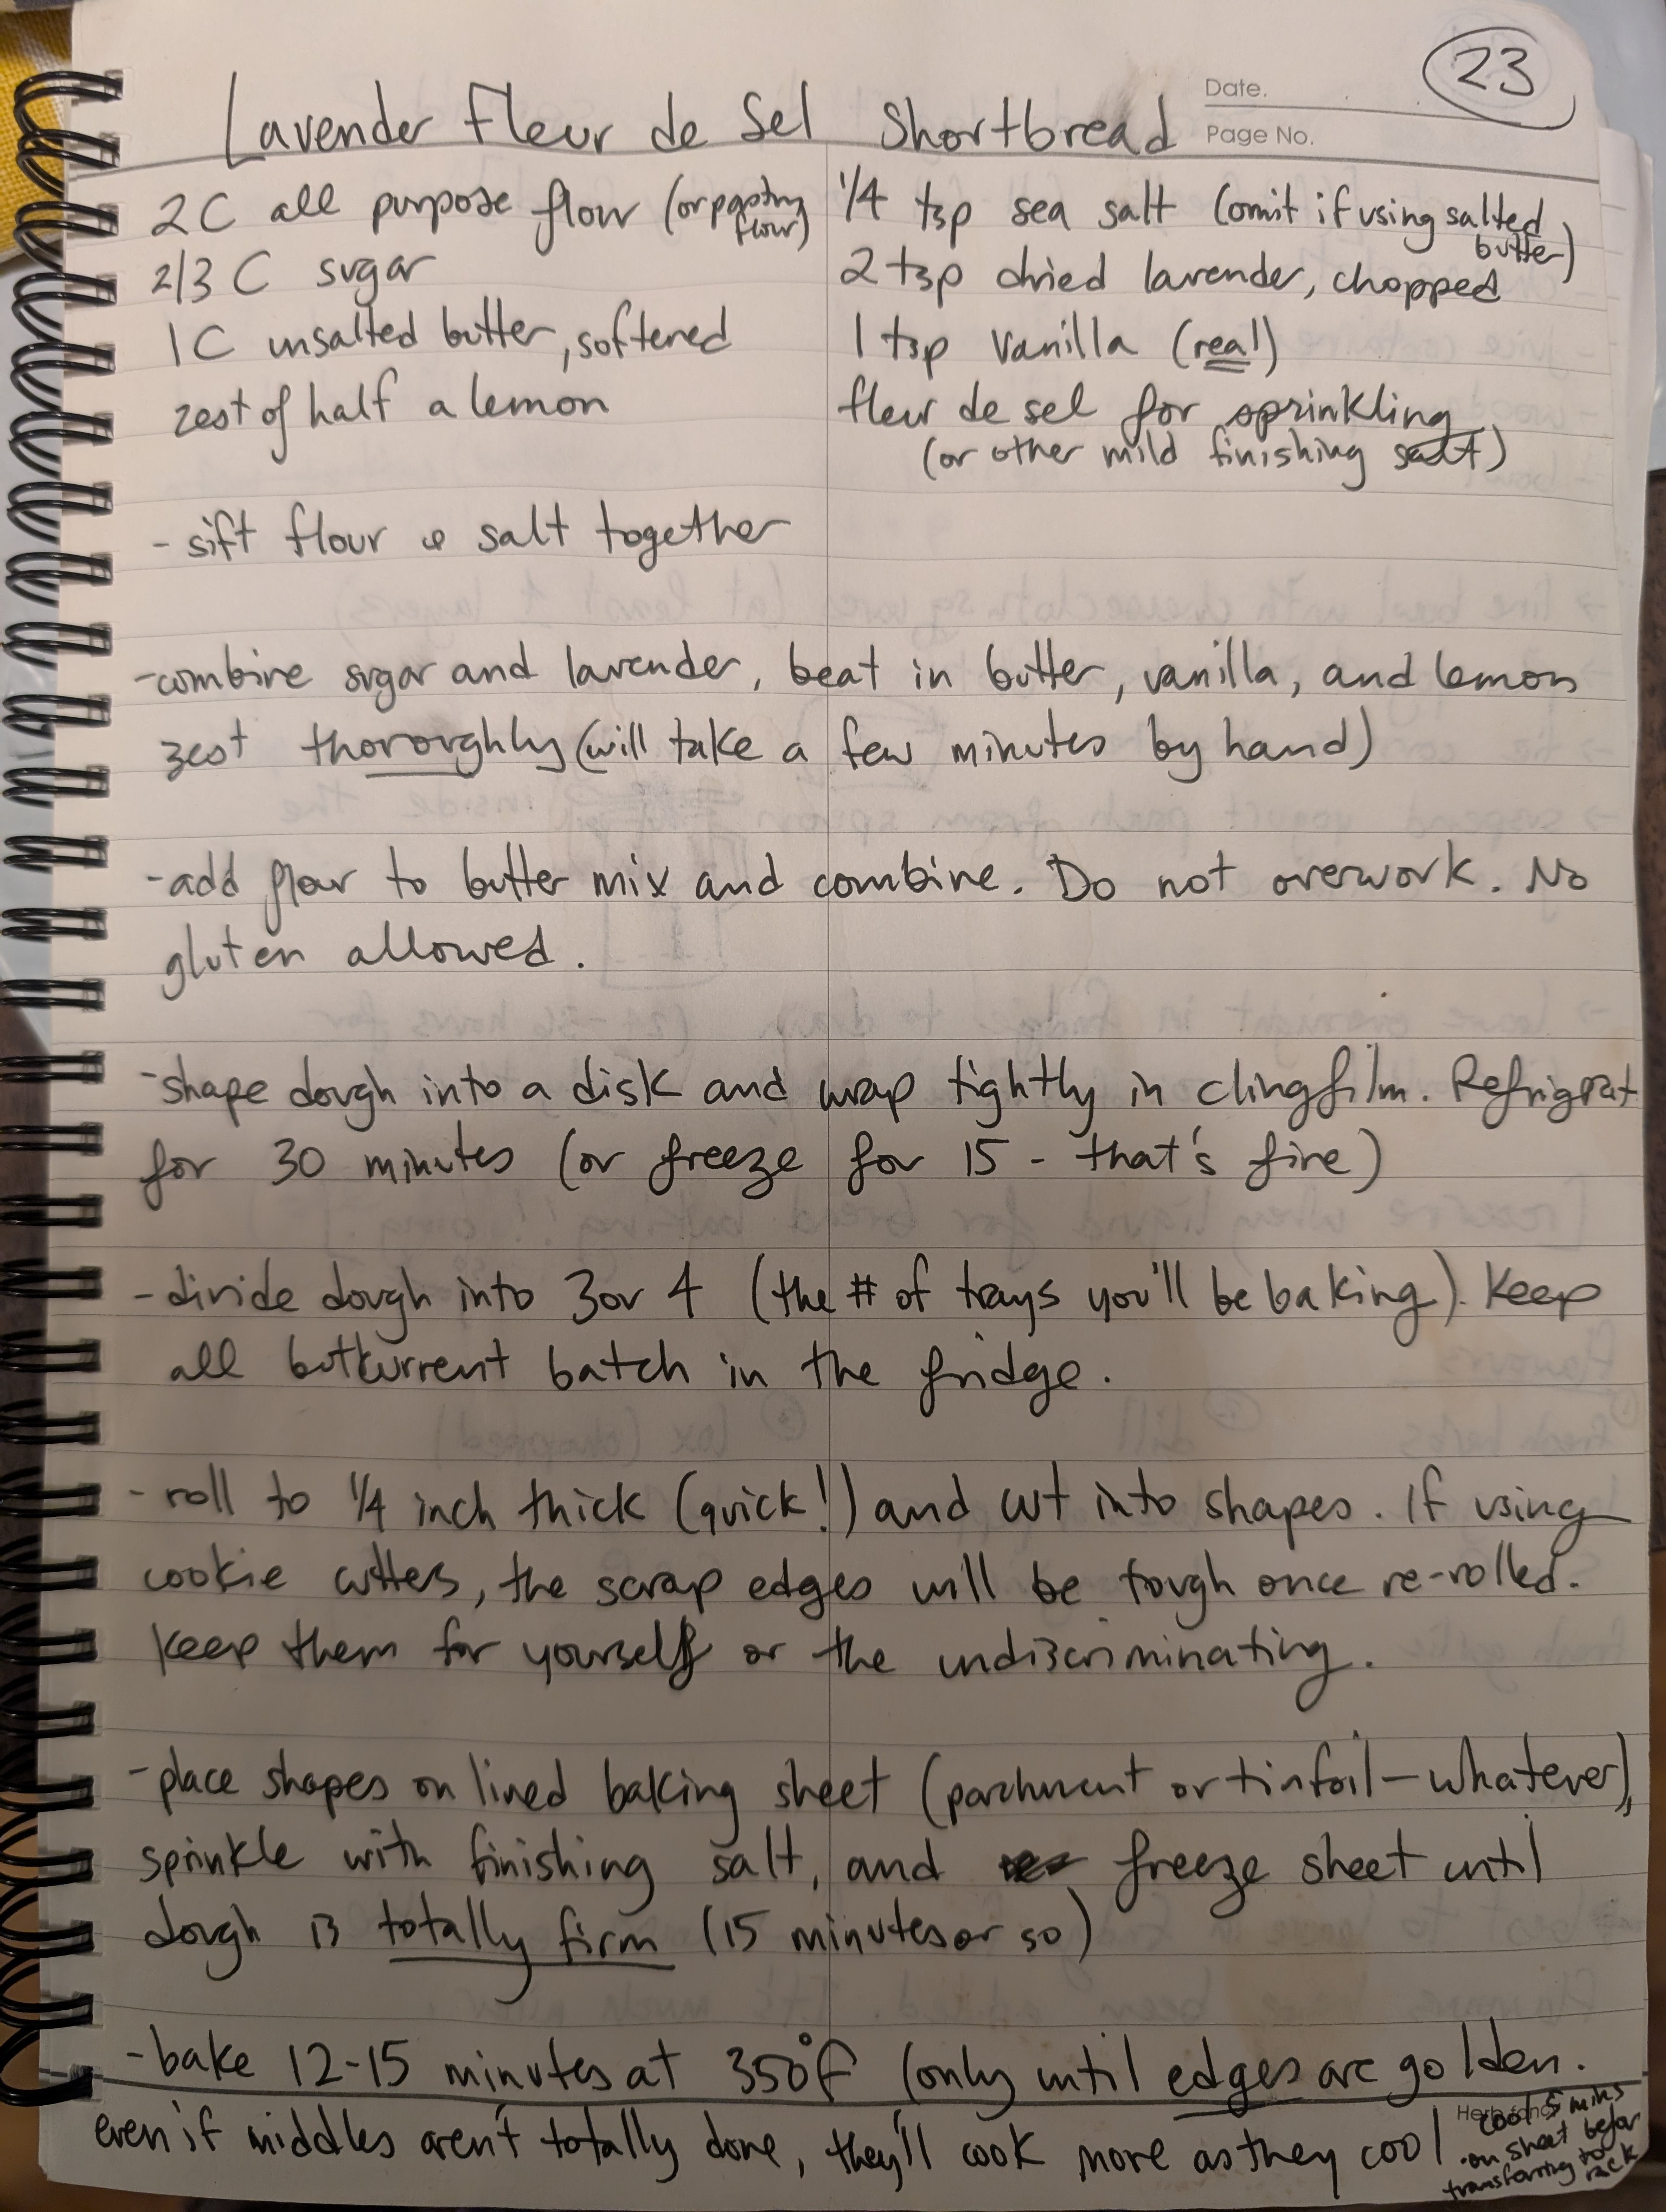 23
Date.
Page No.
Lavender Fleur de Sel Shortbread
2C all purpose flour (or pastry flour)
2/3 C sugar
1C unsalted butter, softened
zest of half a lemon
1/4 tsp sea salt (omit if using salted
butter)
2 tsp dried lavender, chopped
1 tsp vanilla (real)
fleur de sel for sprinkling
(or other mild finishing salt)
- sift flour & salt together
-combine sugar and lavender, beat in butter, vanilla, and lemon
zest thoroughly (will take a few minutes by hand)
-add flour to butter mix and combine. Do not overwork. No
gluten allowed.
-shape dough into a disk and wrap tightly in clingfilm. Refrigerat
for 30 minutes (or freeze for 15 - that's fine)
-divide dough into 3 or 4 (the # of trays you'll be baking). Keep
all but current batch in the fridge.
-roll to 1/4 inch thick (quick!) and cut into shapes. If using
cookie cutters, the scrap edges will be tough once re-rolled.
Keep them for yourself or the undiscriminating.
-place shapes on lined baking sheet (parchment or tinfoil-whatever),
sprinkle with finishing salt, and freeze sheet until
dough is totally firm (15 minutes or so)
-bake 12-15 minutes at 350°F (only until edges are golden.
even if middles aren't totally done, they'll cook more as they cool
cool 5 mins
on sheet befor
transferring to
rack